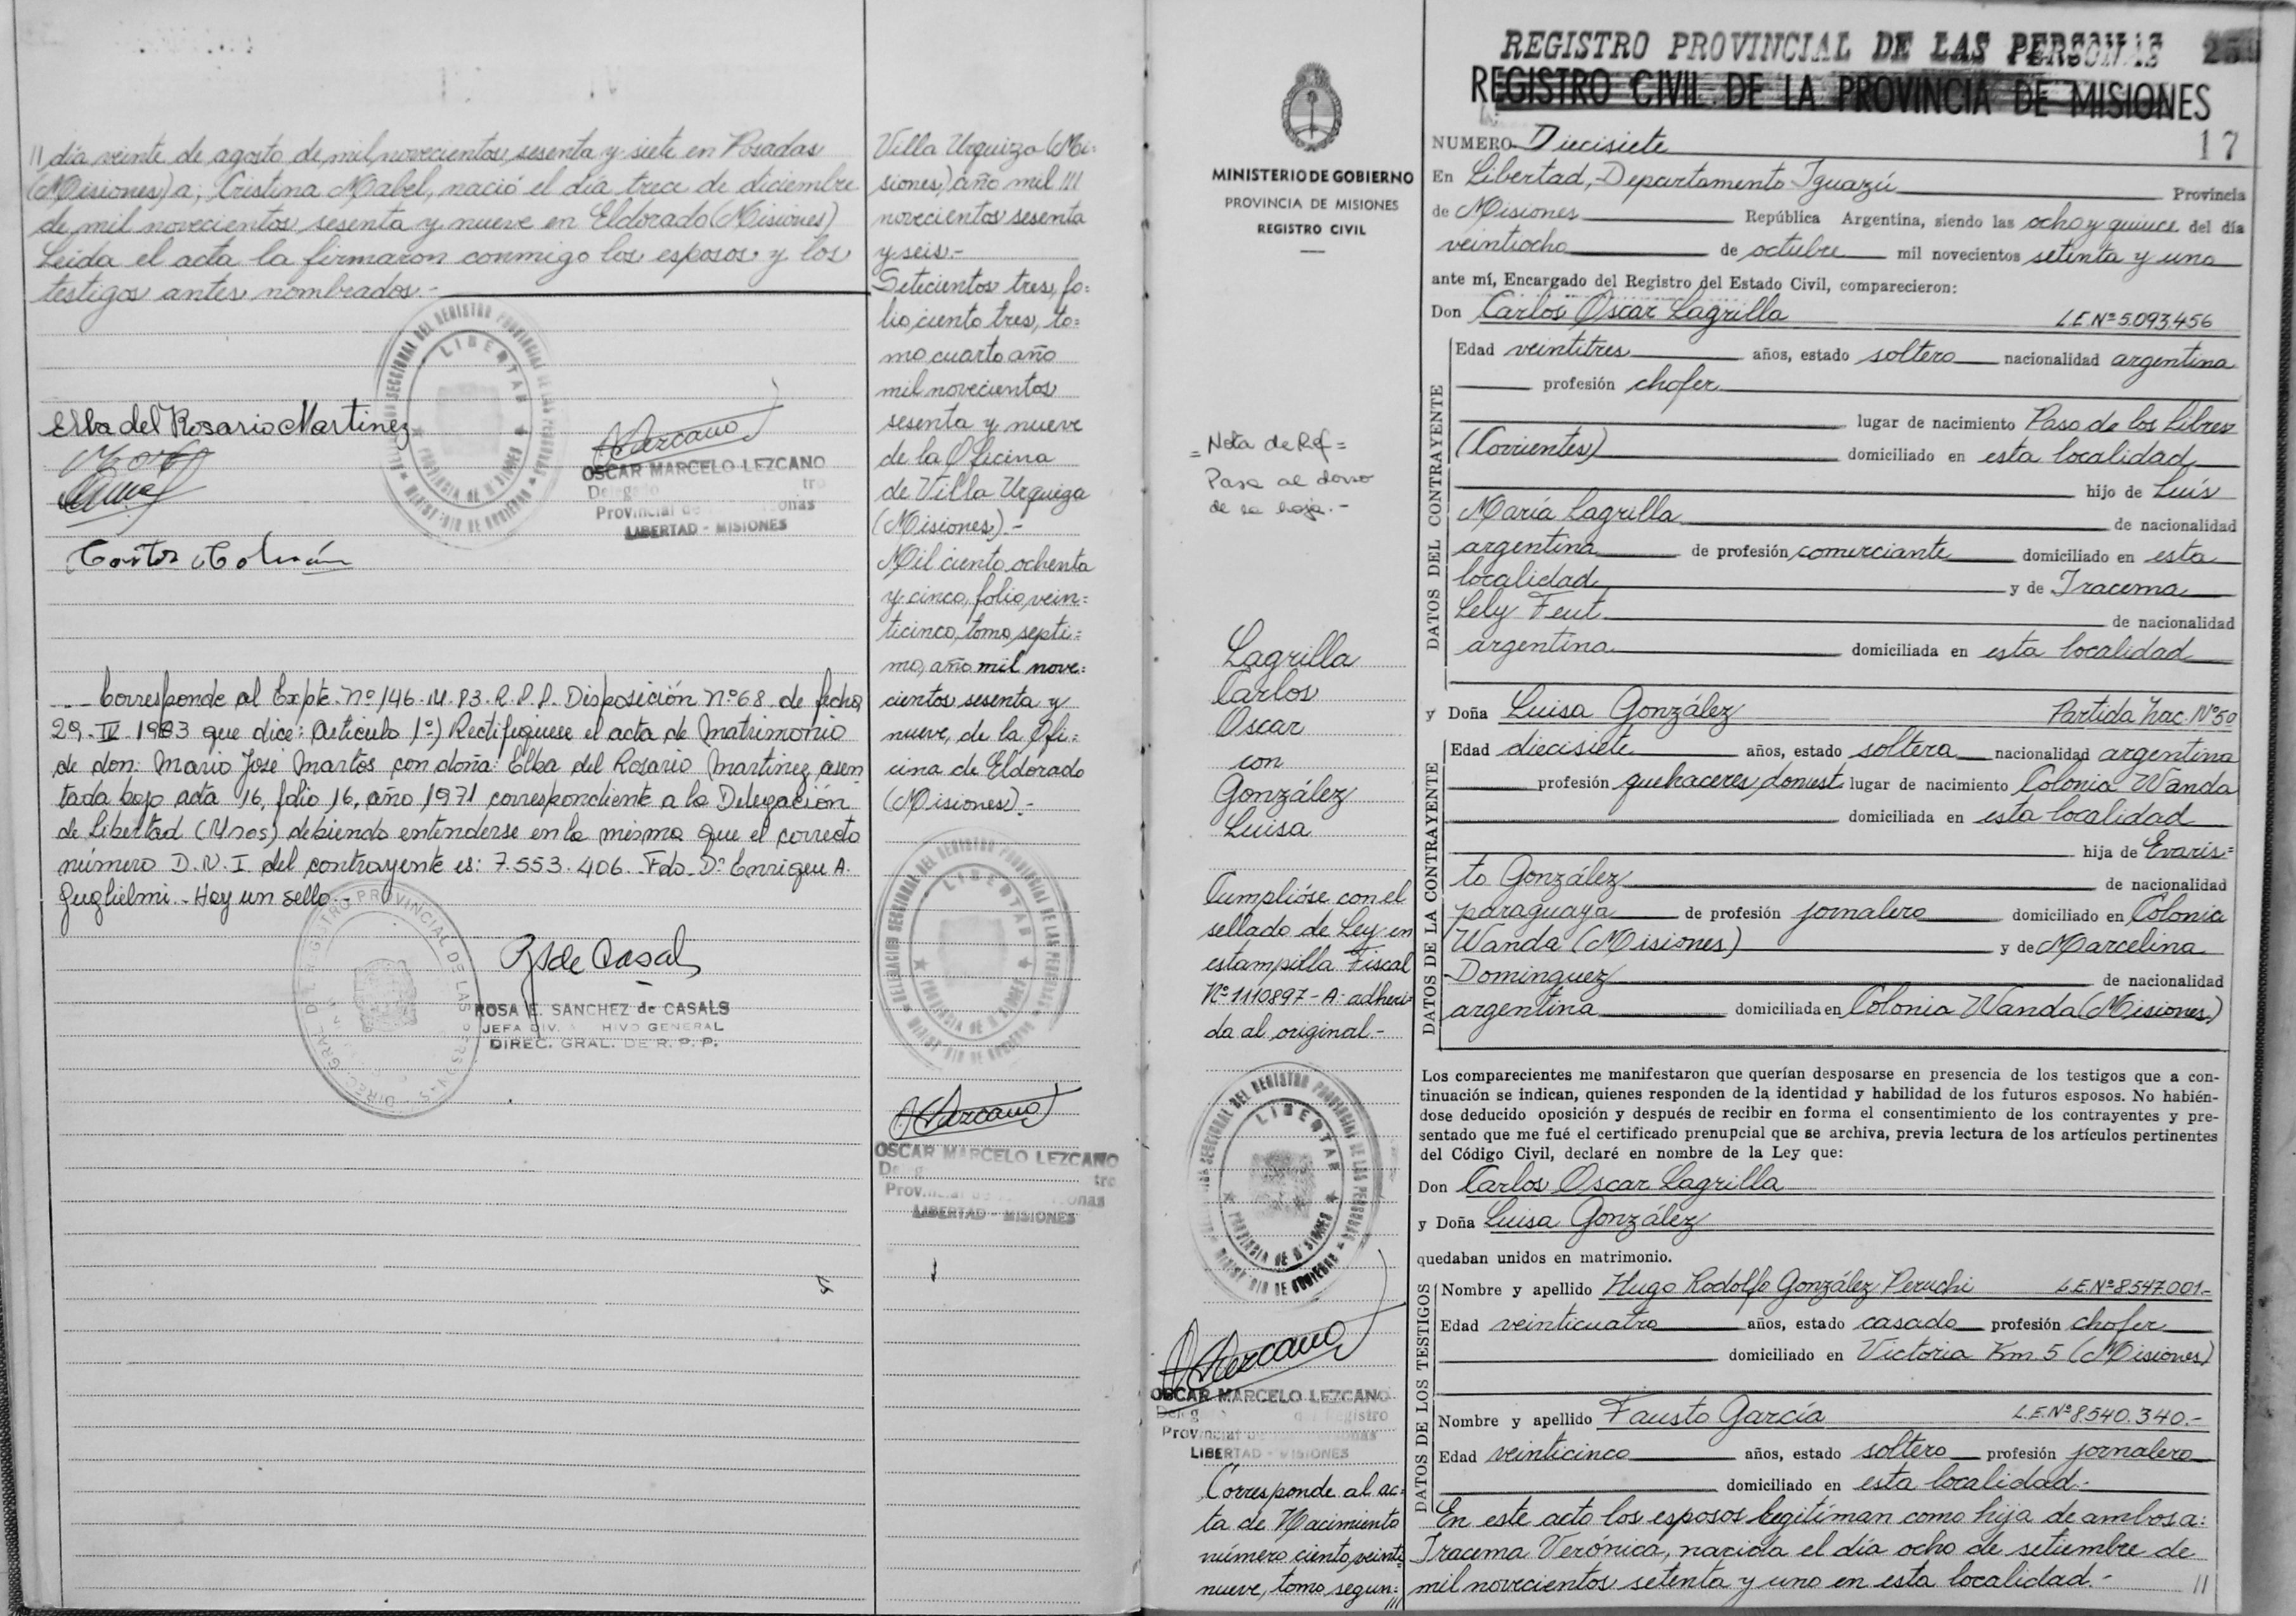 // día veinte de agosto de mil novecientos sesenta y siete en Posadas
(Misiones) a; Cristina Mabel, nació el día trece de diciembre
de mil novecientos sesenta y nueve en Eldorado (Misiones)
Leida el acta la firmaron conmigo los esposos y los
testigos antes nombrados.-
DELEGACION SECCIONAL DEL REGISTRO PROVINCIAL DE LAS PERSONAS
LIBERTAD
PROVINCIA DE MISIONES
MINISTERIO DE GOBIERNO
Elba del Rosario Martinez
OSCAR MARCELO LEZCANO
Provincial de
LIBERTAD - MISIONES
Corresponde al Expte. Nº 146-M-83-R.P.P. Disposición Nº 68 de fecha
29-IV-1983 que dice: Articulo 1º) Rectifiquese el acta de Matrimonio
de don: Mario José Martos con doña: Elba del Rosario Martinez, asen
tada bajo acta 16, folio 16, año 1971 correspondiente a la Delegación
de Libertad (Mnes) debiendo entenderse en la misma que el correcto
número D.N.I. del contrayente es: 7.553.406. Fdo. Dº Enrique A.
Guglielmi.- Hay un sello.-
ROSA E. SANCHEZ de CASALS
JEFA DIV. ARCHIVO GENERAL
DIREC. GRAL. DE R. P. P.
Villa Urquiza (Mi=
siones), año mil ///
novecientos sesenta
y seis.-
Setecientos tres, fo=
lio ciento tres, to=
mo cuarto año
mil novecientos
sesenta y nueve
de la Oficina
de Villa Urquiza
(Misiones).-
Mil ciento ochenta
y cinco, folio vein=
ticinco, tomo septi=
mo, año mil nove=
cientos sesenta y
nueve, de la Ofi=
cina de Eldorado
(Misiones).-
DELEGACION SECCIONAL DEL REGISTRO PROVINCIAL DE LAS PERSONAS
LIBERTAD
PROVINCIA DE MISIONES
MINISTERIO DE GOBIERNO
OSCAR MARCELO LEZCANO
LIBERTAD - MISIONES
MINISTERIO DE GOBIERNO
PROVINCIA DE MISIONES
REGISTRO CIVIL
= Nota de Ref =
Pasa al dorso
de la hoja.-
Lagrilla
Carlos
Oscar
con
González
Luisa
Cumplióse con el
sellado de Ley en
estampilla Fiscal
Nº 1110897-A- adheri=
da al original.-
DELEGACION SECCIONAL DEL REGISTRO PROVINCIAL DE LAS PERSONAS
LIBERTAD
PROVINCIA DE MISIONES
MINISTERIO DE GOBIERNO
OSCAR MARCELO LEZCANO
LIBERTAD - MISIONES
Corresponde al ac=
ta de Nacimiento
número ciento veinti=
nueve, tomo segun=
///
REGISTRO PROVINCIAL DE LAS PERSONAS
REGISTRO CIVIL DE LA PROVINCIA DE MISIONES
NUMERO Diecisiete 17
En Libertad, Departamento Iguazú Provincia
de Misiones República Argentina, siendo las ocho y quince del día
veintiocho de octubre mil novecientos setenta y uno
ante mí, Encargado del Registro del Estado Civil, comparecieron:
Don Carlos Oscar Lagrilla L.E.Nº 5.093.456
DATOS DEL CONTRAYENTE
Edad veintitres años, estado soltero nacionalidad argentina
profesión chofer
lugar de nacimiento Paso de los Libres
(Corrientes) domiciliado en esta localidad
hijo de Luís
María Lagrilla de nacionalidad
argentina de profesión comerciante domiciliado en esta
localidad y de Iracema
Lely Feut de nacionalidad
argentina domiciliada en esta localidad
y Doña Luisa González Partida Nac. Nº 50
DATOS DE LA CONTRAYENTE
Edad diecisiete años, estado soltera nacionalidad argentina
profesión quehaceres domest. lugar de nacimiento Colonia Wanda
domiciliada en esta localidad
hija de Evaris=
to González de nacionalidad
paraguaya de profesión jornalero domiciliado en Colonia
Wanda (Misiones) y de Marcelina
Dominguez de nacionalidad
argentina domiciliada en Colonia Wanda (Misiones)
Los comparecientes me manifestaron que querían desposarse en presencia de los testigos que a con-
tinuación se indican, quienes responden de la identidad y habilidad de los futuros esposos. No habién-
dose deducido oposición y después de recibir en forma el consentimiento de los contrayentes y pre-
sentado que me fué el certificado prenupcial que se archiva, previa lectura de los artículos pertinentes
del Código Civil, declaré en nombre de la Ley que:
Don Carlos Oscar Lagrilla
y Doña Luisa González
quedaban unidos en matrimonio.
DATOS DE LOS TESTIGOS
Nombre y apellido Hugo Rodolfo González Peruchi L.E.Nº 8.547.001.-
Edad veinticuatro años, estado casado profesión chofer
domiciliado en Victoria Km. 5 (Misiones)
DATOS DE LOS TESTIGOS
Nombre y apellido Fausto García L.E.Nº 8.540.340.-
Edad veinticinco años, estado soltero profesión jornalero
domiciliado en esta localidad.-
En este acto los esposos legitíman como hija de ambos a:
Iracema Verónica, nacida el día ocho de setiembre de
mil novecientos setenta y uno en esta localidad.- //